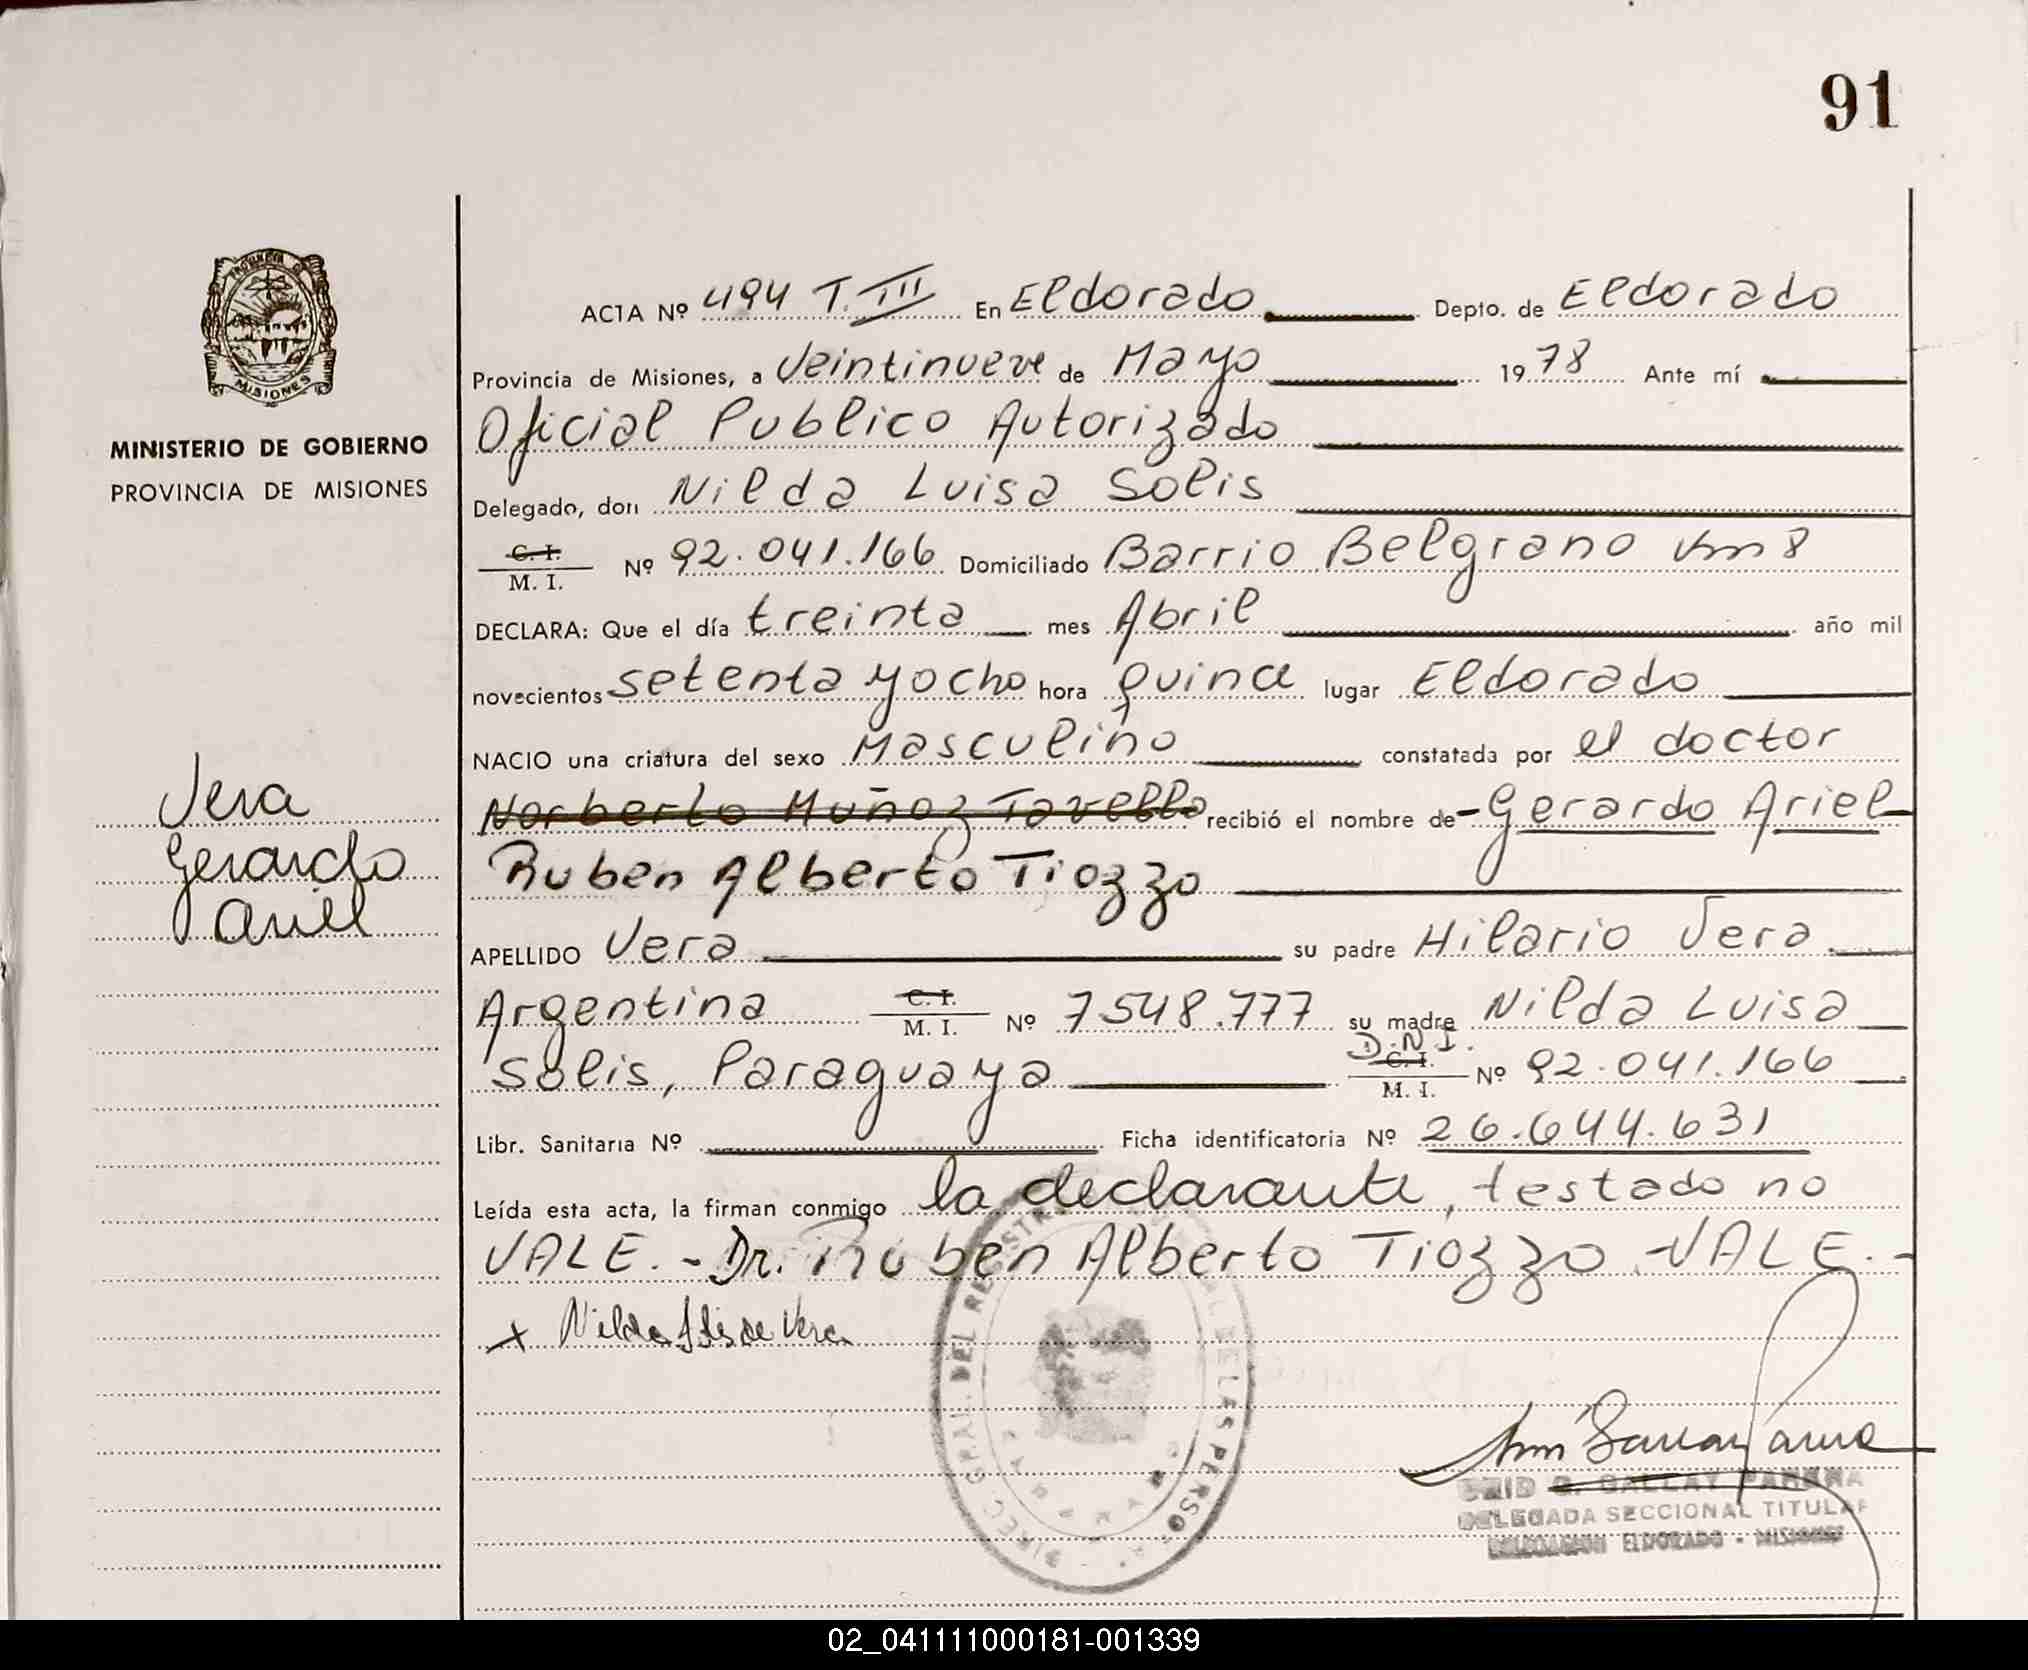 91
ACTA Nº 494 T. III En Eldorado Depto. de Eldorado
Provincia de Misiones, a Veintinueve de Mayo 1978 Ante mí
Oficial Publico Autorizado
MINISTERIO DE GOBIERNO
PROVINCIA DE MISIONES
Delegado, don Nilda Luisa Solis
C. I. M. I. Nº 92.041.166 Domiciliado Barrio Belgrano km 8
DECLARA: Que el día treinta mes Abril año mil
novecientos setenta y ocho hora quince lugar Eldorado
NACIO una criatura del sexo Masculino constatada por el doctor
Norberto Muñoz Tavello recibió el nombre de - Gerardo Ariel
Vera
Gerardo
Ariel
Ruben Alberto Tiozzo
APELLIDO Vera su padre Hilario Vera
Argentina C. I. M. I. Nº 7548.777 su madre Nilda Luisa
Solis, Paraguaya D.N.I. C. I. M. I. Nº 92.041.166
Libr. Sanitaria Nº Ficha identificatoria Nº 26.644.631
Leída esta acta, la firman conmigo la declarante, testado no
VALE. - Dr. Ruben Alberto Tiozzo - VALE. -
x Nilda Solis de Vera
DIREC. GRAL. DEL REGISTRO DE LAS PERSONAS
G. GALLAY PARERA
DELEGADA SECCIONAL TITULAR
DELEGACION ELDORADO - MISIONES
02_041111000181-001339